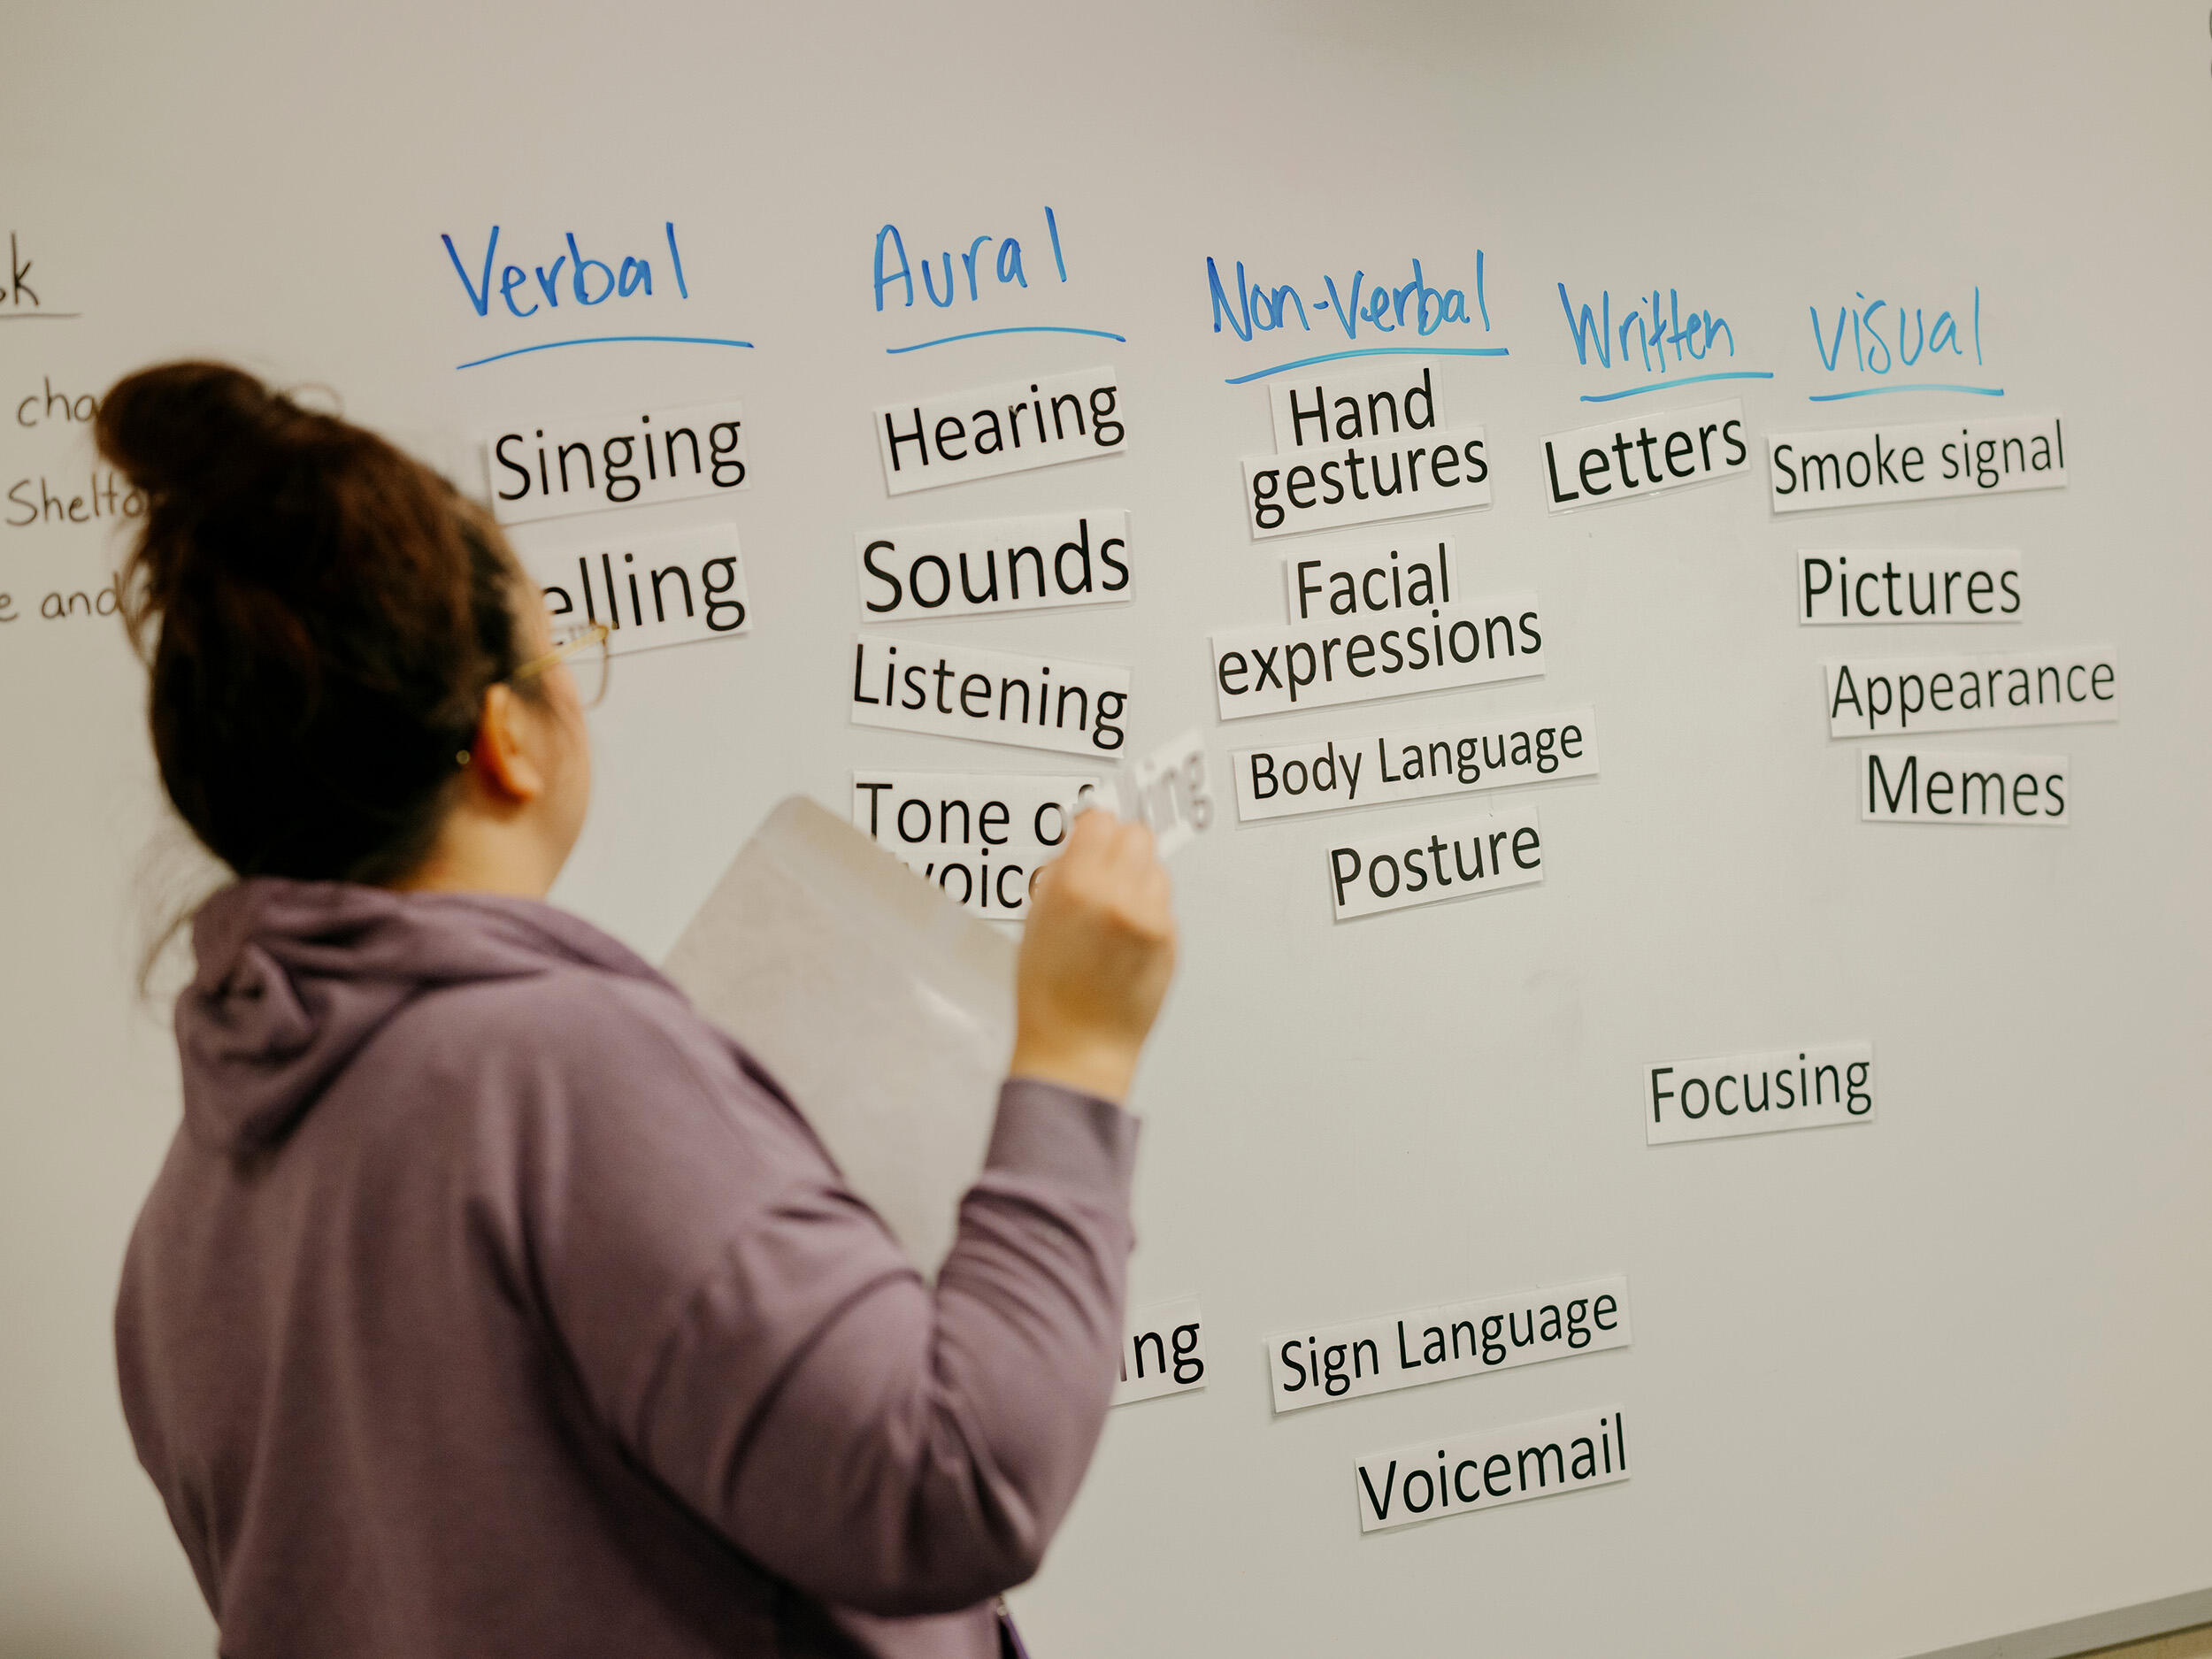 Verbal
Aural
Non-Verbal
Written
Visual
Singing
elling
Hearing
Sounds
Listening
Tone of
voice
Hand
gestures
Facial
expressions
Body Language
Posture
Letters
Smoke signal
Pictures
Appearance
Memes
Focusing
ng
Sign Language
Voicemail
k
cha
Shelto
e and